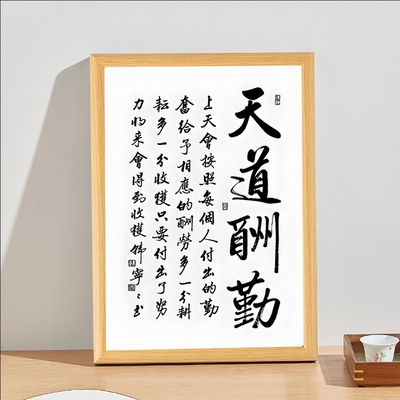 天道酬勤
上天會按照每個人付出的勤
奮給予相應的酬勞多一分耕
耘多一分收獲只要付出了努
力將來會得到收獲